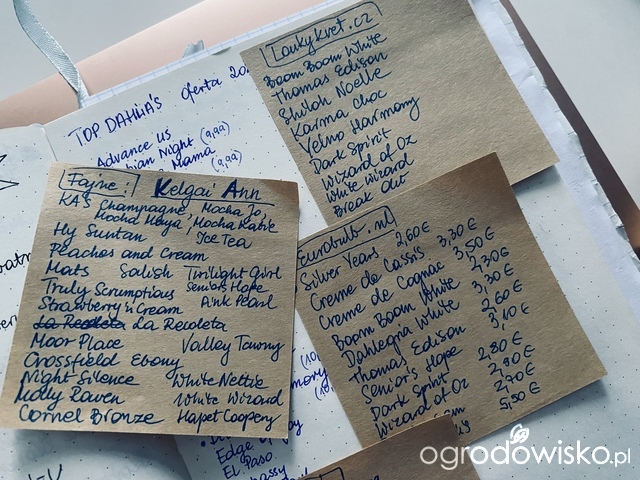 TOP DAHLIA'S oferta
Advance us
Night (9,99)
Mama (9,99)
Edge
El Paso
Loukykvet.cz
Boom Boom White
Thomas Edison
Shiloh Noelle
Karma Choc
Yelno Harmony
Dark Spirit
Wizard of Oz
White wizard
Break Out
Fajne: Kelgai Ann
KA's Champagne, Mocha Jo,
Mocha Maya, Mocha Katie
Hy Suntan Ice Tea
Peaches and Cream
Mats Salish Twilight Girl
Truly Scrumptious Seniors Hope
Strawberry'n Cream A'nk Pearl
La Recoleta La Recoleta
Moor Place Valley Tawny
Crossfield Ebony
Night Silence White Nettie
Molly Raven White Wizard
Cornel Bronze Hapet Coopery
Eurobulb.nl
Silver Years 2,60€
Creme de Cassis 3,30€
Creme de Cognac 3,50€
Boom Boom White 2,30€
Dahlegria White 3,30€
Thomas Edison 2,60€
Senior's Hope 3,10€
Dark Spirit 2,80€
Wizard of Oz 2,90€
2,70€
5,50€
ogrodowisko.pl